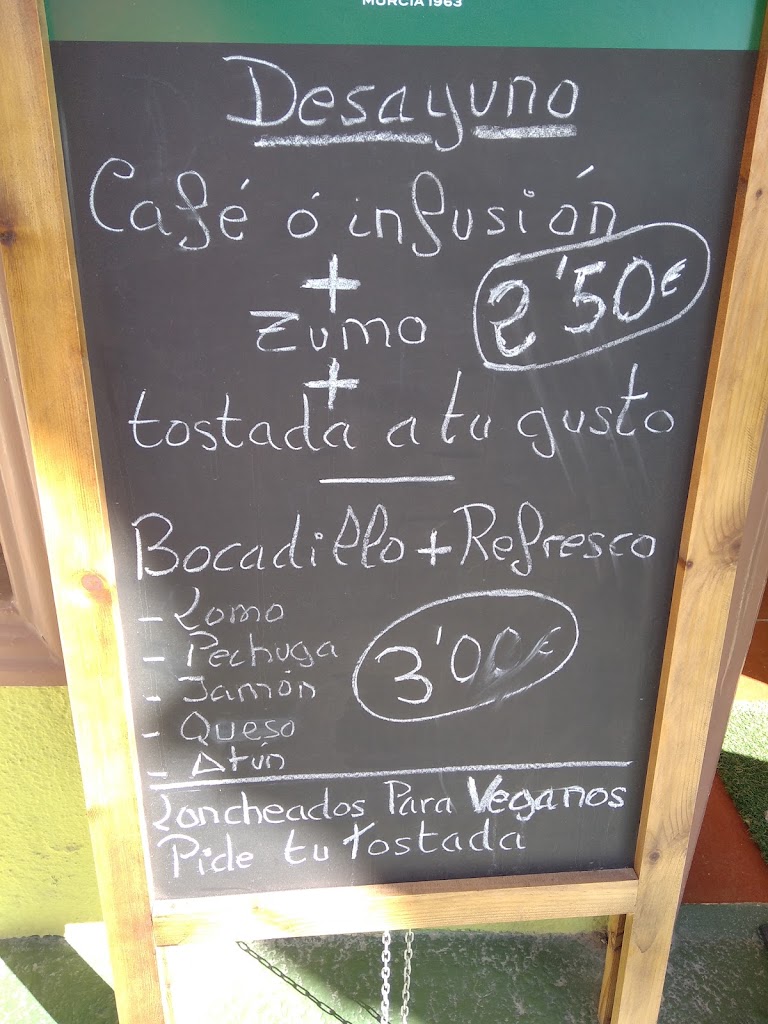 MURCIA 1963
Desayuno
Café ó infusión
+
2'50€
Zumo
+
tostada a tu gusto
Bocadillo + Refresco
- Lomo
- Pechuga
3'00€
- Jamón
- Queso
- Atún
Loncheados Para Veganos
Pide tu tostada